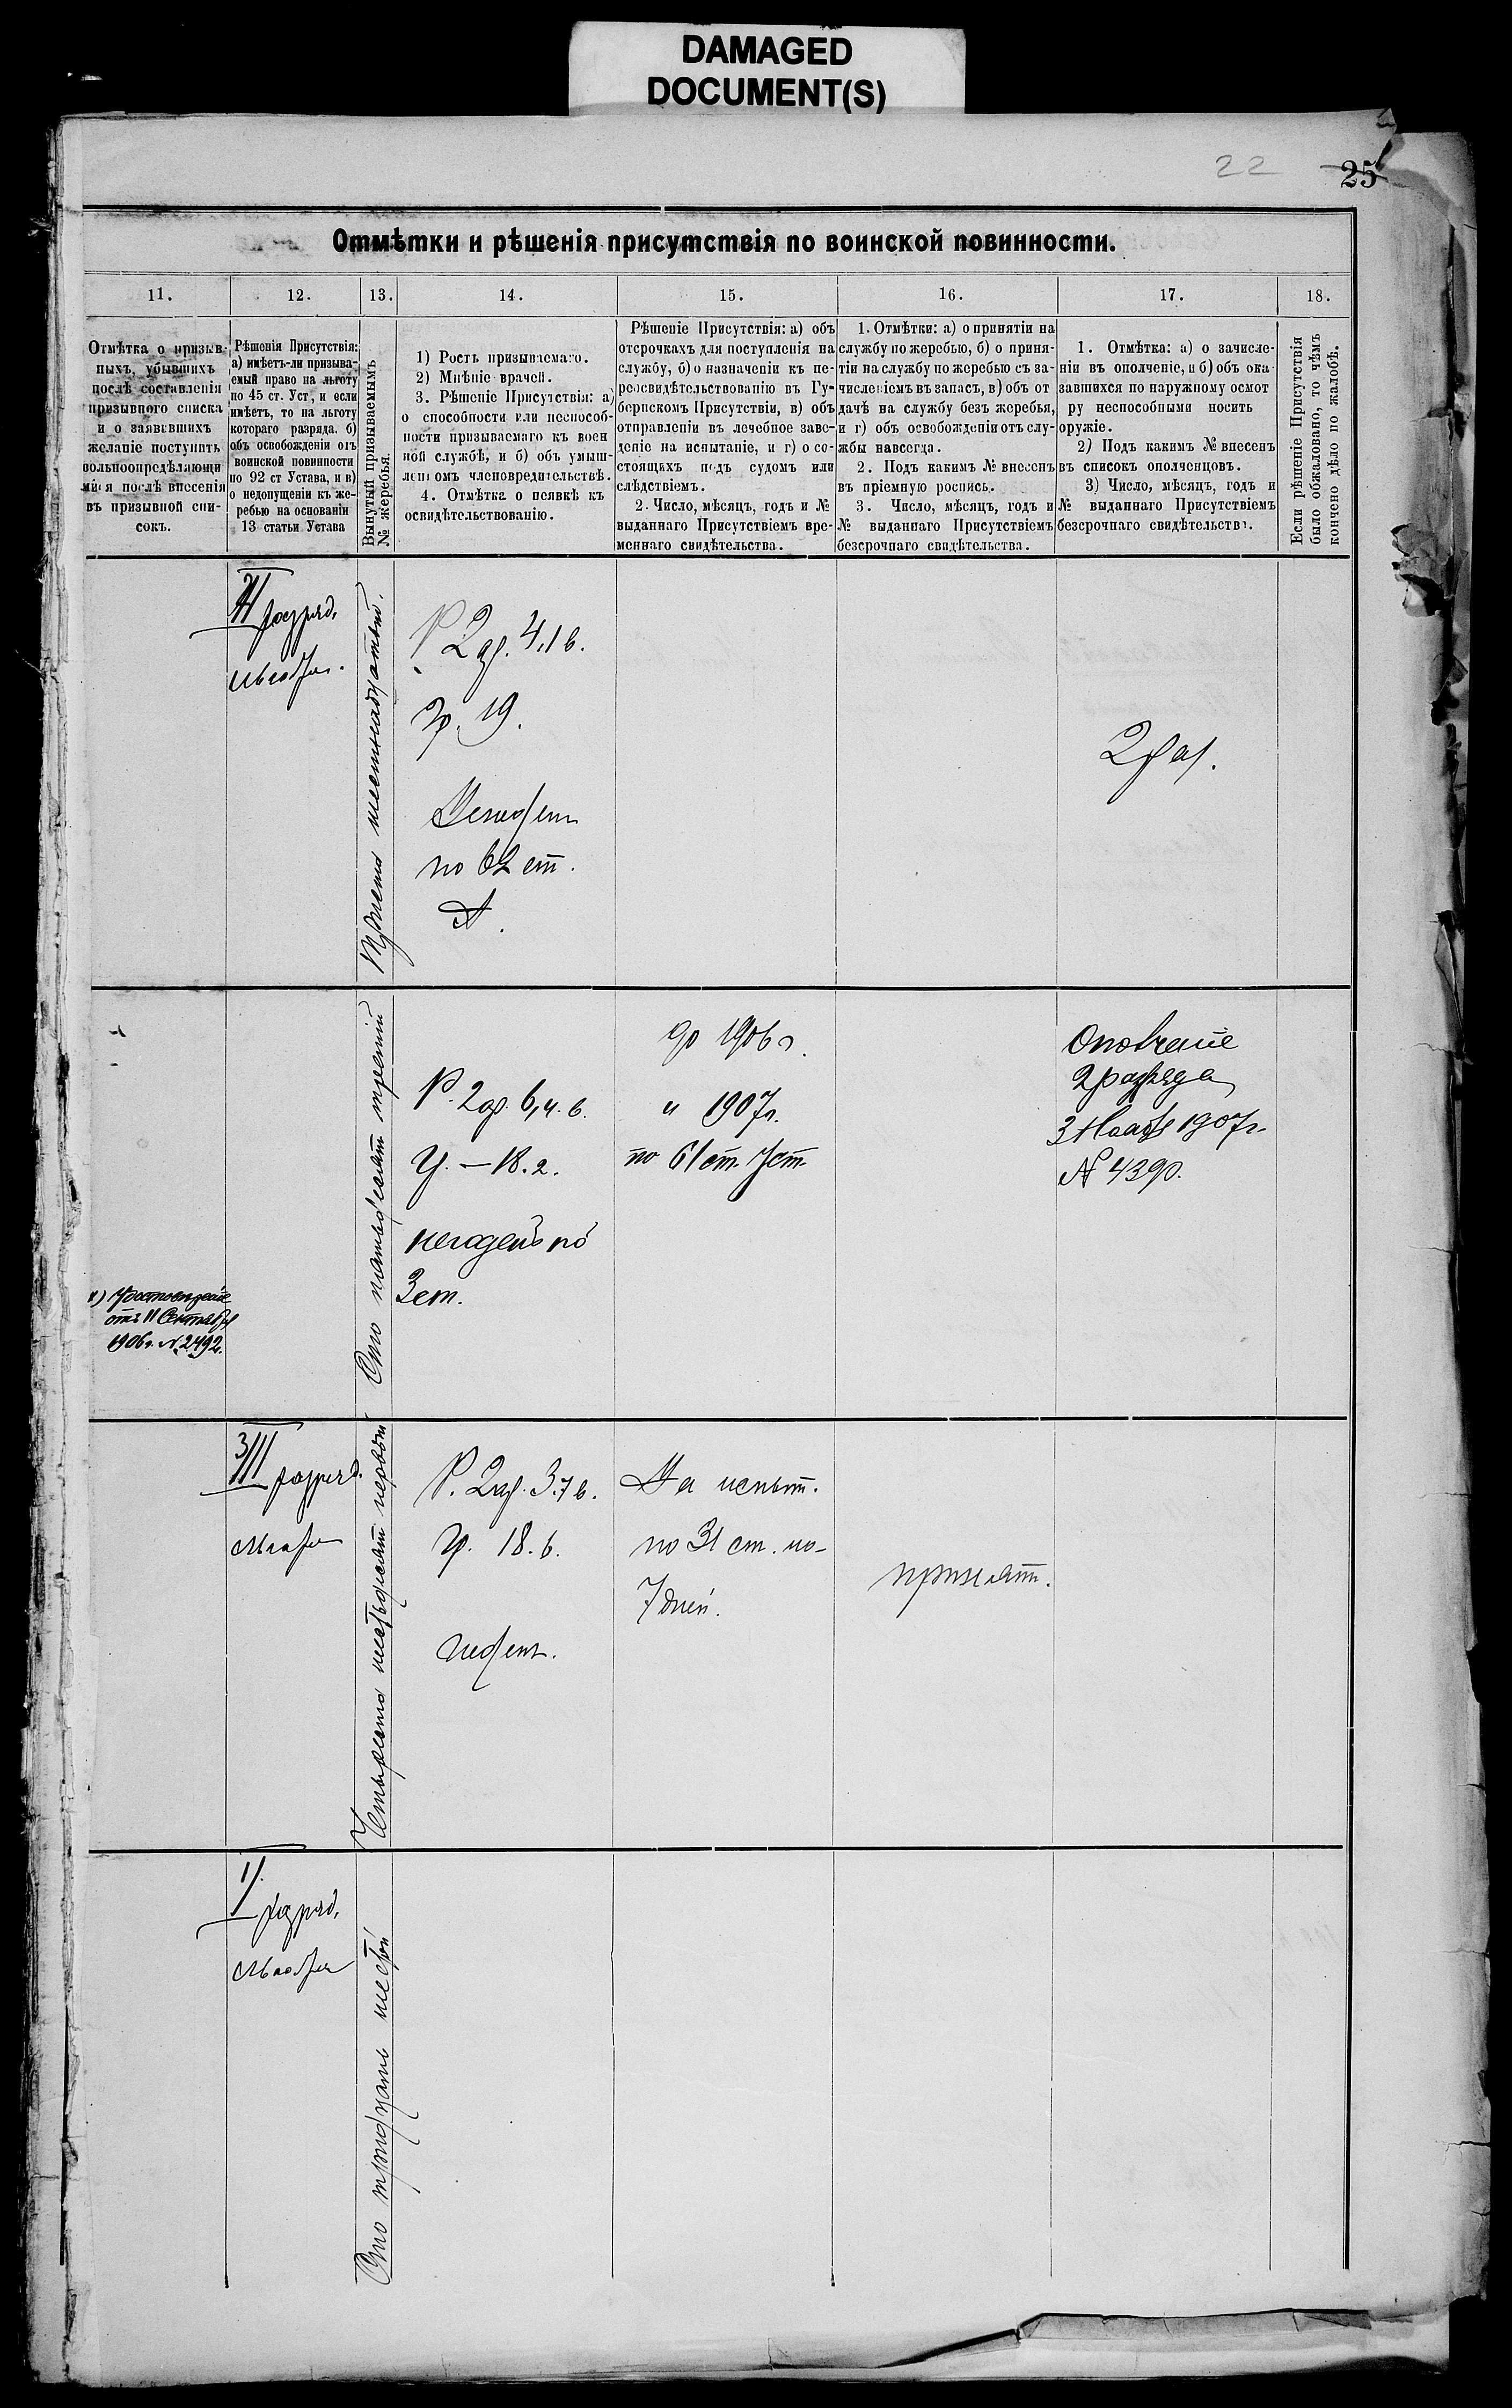 DAMAGED
DOCUMENT(S)
22
25
Отмѣтки и рѣшенія присутствія по воинской повинности.
11.
12.
13.
14.
15.
16.
17.
18.
Отмѣтка о призыв-
ныхъ, убывшихъ
послѣ составленія
призывного списка
и о заявившихъ
желаніе поступить
вольноопредѣляющи
мися послѣ внесенія
въ призывной спи-
сокъ.
Рѣшенія Присутствія:
а) имѣетъ-ли призыва-
емый право на льготу
по 45 ст. Уст, и если
имѣетъ, то на льготу
котораго разряда. б)
объ освобожденіи отъ
воинской повинности
по 92 ст Устава, и в)
о недопущеніи къ же-
ребью на основаніи
13 статьи Устава
Вынутый призываемымъ
№ жеребья.
1) Ростъ призываемаго.
2) Мнѣніе врачей.
3. Рѣшеніе Присутствія: а)
о способности или неспособ-
ности призываемаго къ воен
ной службѣ, и б) объ умыш-
ленномъ членовредительствѣ.
4. Отмѣтка о неявкѣ къ
освидѣтельствованію.
Рѣшеніе Присутствія: а) объ
отсрочкахъ для поступленія на
службу, б) о назначеніи къ пе-
реосвидѣтельствованію въ Гу-
бернскомъ Присутствіи, в) объ
отправленіи въ лечебное заве-
деніе на испытаніе, и г) о со-
стоящихъ подъ судомъ или
слѣдствіемъ.
2. Число, мѣсяцъ, годъ и №
выданнаго Присутствіемъ вре-
меннаго свидѣтельства.
1. Отмѣтки: а) о принятіи на
службу по жеребью, б) о приня-
тіи на службу по жеребью съ за-
численіемъ въ запасъ, в) объ от
дачѣ на службу безъ жеребья,
и г) объ освобожденіи отъ слу-
жбы навсегда.
2. Подъ какимъ № внесенъ
въ пріемную роспись.
3. Число, мѣсяцъ, годъ и
№ выданнаго Присутствіемъ
безсрочнаго свидѣтельства.
1. Отмѣтка: а) о зачисле-
ніи въ ополченіе, и б) объ ока-
завшихся по наружному осмот
ру неспособными носить
оружіе.
2) Подъ какимъ № внесенъ
въ списокъ ополченцовъ.
3) Число, мѣсяцъ, годъ и
№ выданнаго Присутствіемъ
безсрочнаго свидѣтельства.
Если рѣшеніе Присутствія
было обжаловано, то чѣмъ
кончено дѣло по жалобѣ.
разряд.
Триста шестнадцатый.
Р. 2 ар. 4,1 в.
гр. 19.
по 62 ст.
2 раз.
Сто пятьдесят третій
Р. 2 ар. 6,4. в.
— 18.2.
негоденъ по
3 ст.
до 1906 г.
и 1907 г.
по 61 ст. Уст.
Ополченіе
2 разряда
1907 г.
№ 4390.
отъ 11 Сентября
1906 г. № 2492.
III разряд.
Четыреста шестьдесят первый
Р. 2 ар. 3.7 в.
гр. 18.6.
На испыт.
по 31 ст. на
7 дней.
принят.
I разряд.
Сто тридцать шестой